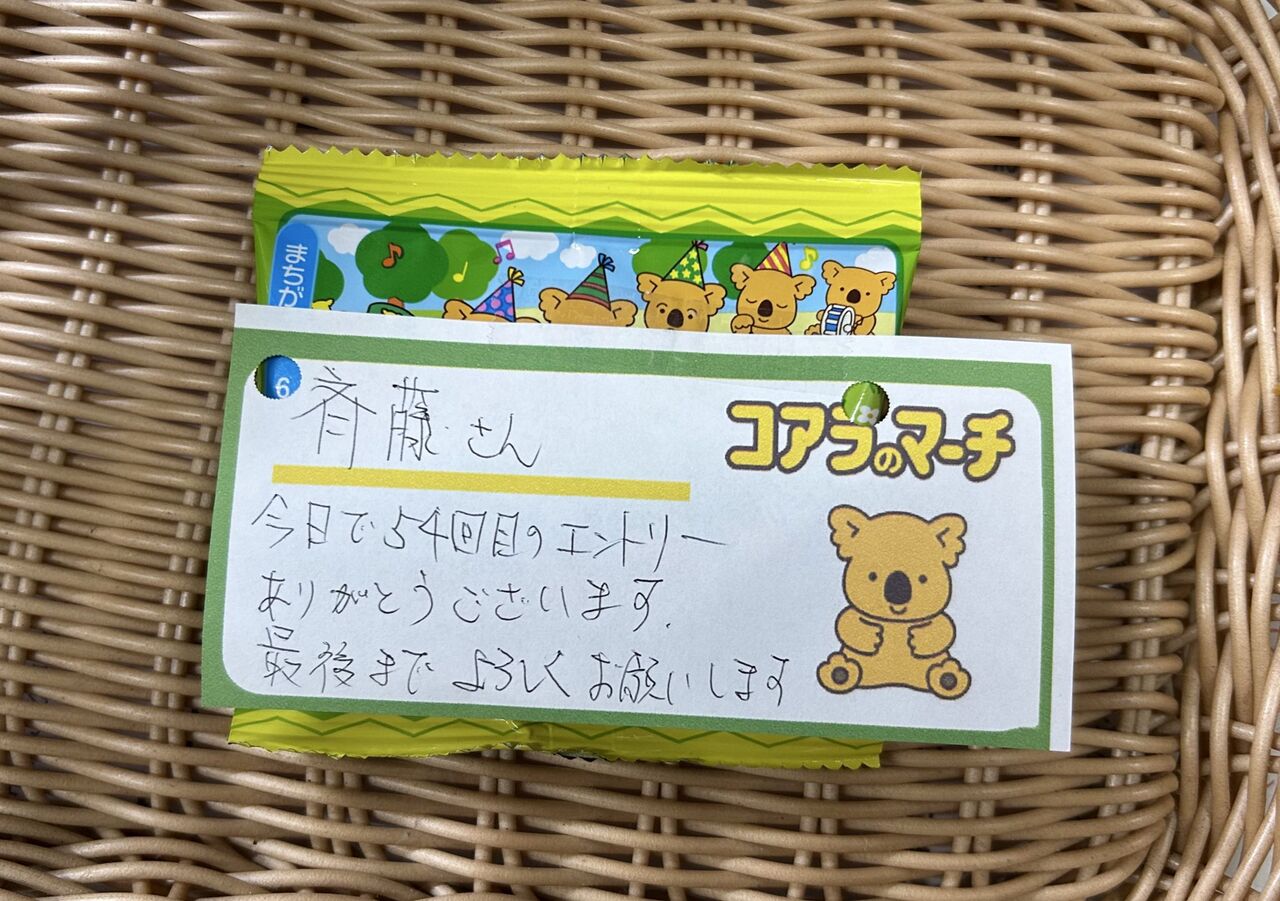 まちが
6
斉藤さん
コアラのマーチ
今日で54回目のエントリー
ありがとうございます.
最後までよろしくお願いします